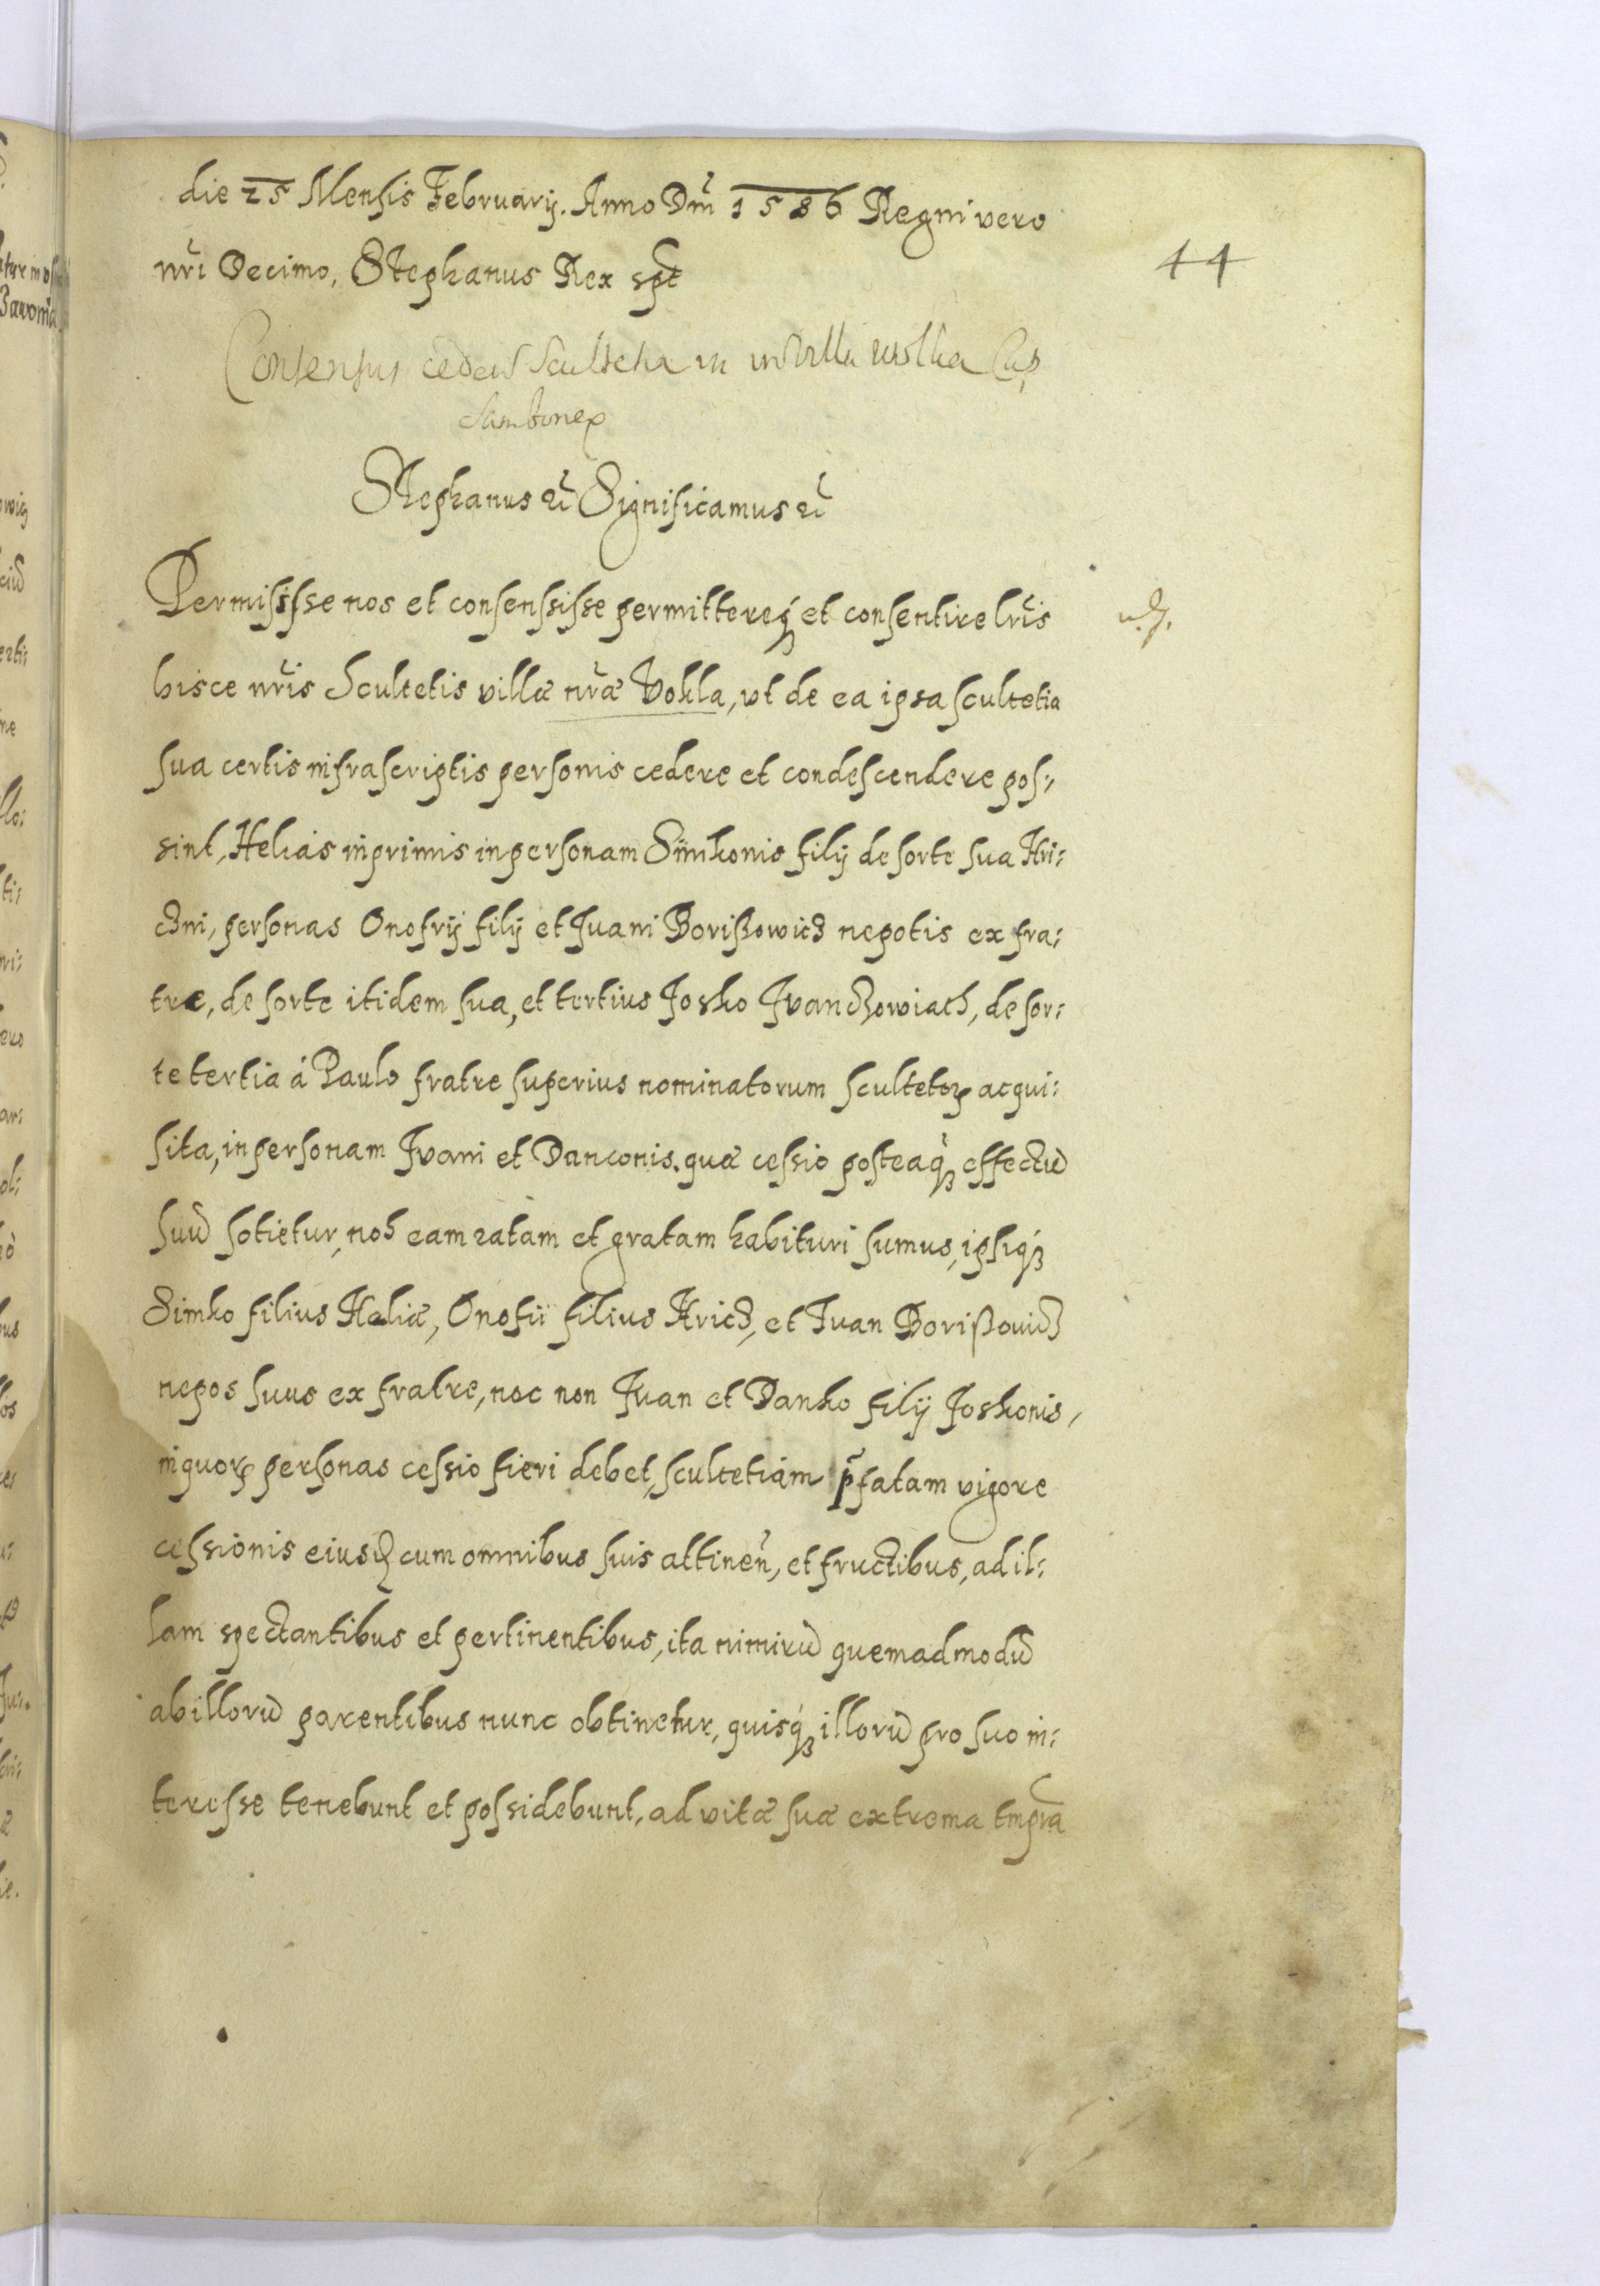 die 25 Mensis Februarij. Anno Dm̃ 1586 Regni vero
nr̃i Decimo, Stephanus Rex spt
44
Consensus cedend Scultetia in villa Wolka Cap
Samborien
Stephanus etc̃ Significamus etc̃
Permisisse nos et consensisse permittereq́ꝫ et consentire lr̃is
hisce nr̃is Scultetis villæ nr̃æ Volla, vt de ea ipsa scultetia
sua certis infrascriptis personis cedere et condescendere pos:
sint, Helias inprimis in personam Simkonis filij de sorte sua Hri:
czni, personas Onofrij filij et Iuani Borissowicz nepotis ex fra:
tre, de sorte itidem sua, et tertius Josko Ivanczowiath, de sor:
te tertia á Paulo fratre superius nominatorum scultetoꝝ acqui:
sita, in personam Ivani et Danconis. quæ cessio posteaq̀ꝫ effectũ
suũ sotietur, nos eam ratam et gratam habituri sumus, ipsiq́ꝫ
Simko filius Heliæ, Onofii filius Hricz, et Iuan Borissouicz
nepos suus ex fratre, nec non Iuan et Danko filij Joskonis,
in quoꝝ personas cessio fieri debet, scultetiam p̃fatam vigore
cessionis eiusdꝫ cum omnibus suis attineñ, et fructibus, ad il:
lam spectantibus et pertinentibus, ita nimirũ quemadmodũ
ab illorũ parentibus nunc obtinetur, quisq́ꝫ illorũ pro suo in:
teresse tenebunt et possidebunt, ad vitæ suæ extrema tmpra